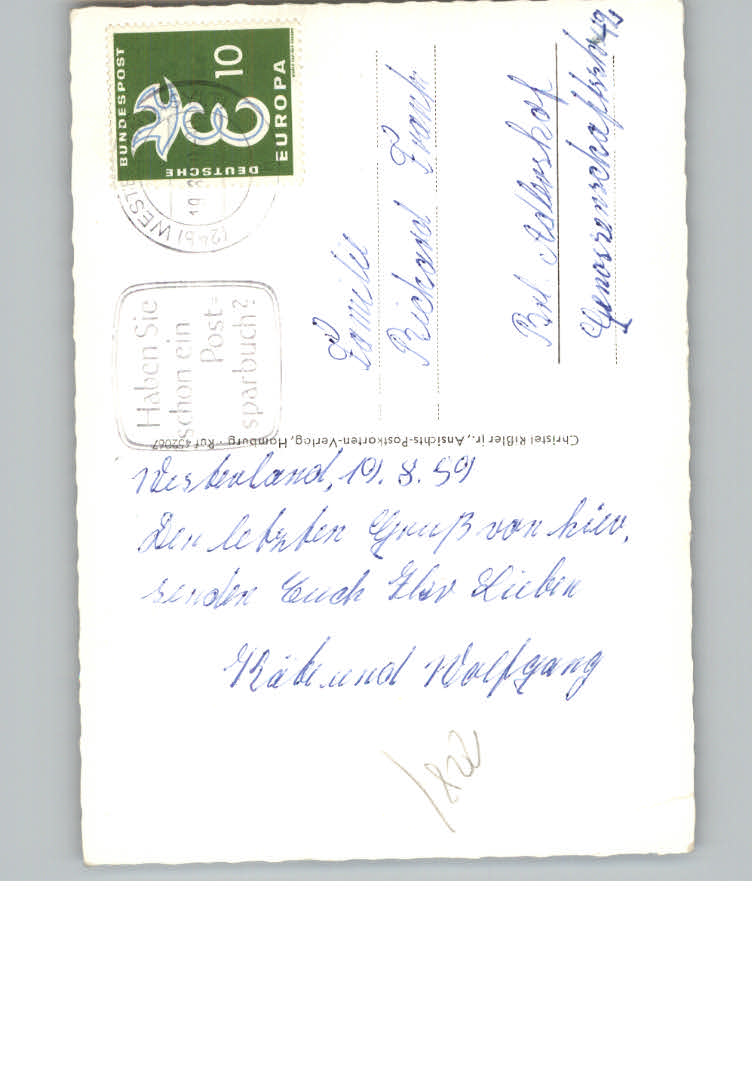 DEUTSCHE
BUNDESPOST
10
EUROPA
(24b) WESTE
19.8.
Haben Sie
schon ein
Post=
sparbuch?
Familie
Richard Frank
Bln. Adlershof
Genossenschaftsstr.
Christel Rißler jr., Ansichts-Postkarten-Verlag, Hamburg · Ruf 452067
Westerland, 19. 8. 59
Den letzten Gruß von hier,
senden Euch Ihr Lieben
Käte und Wolfgang